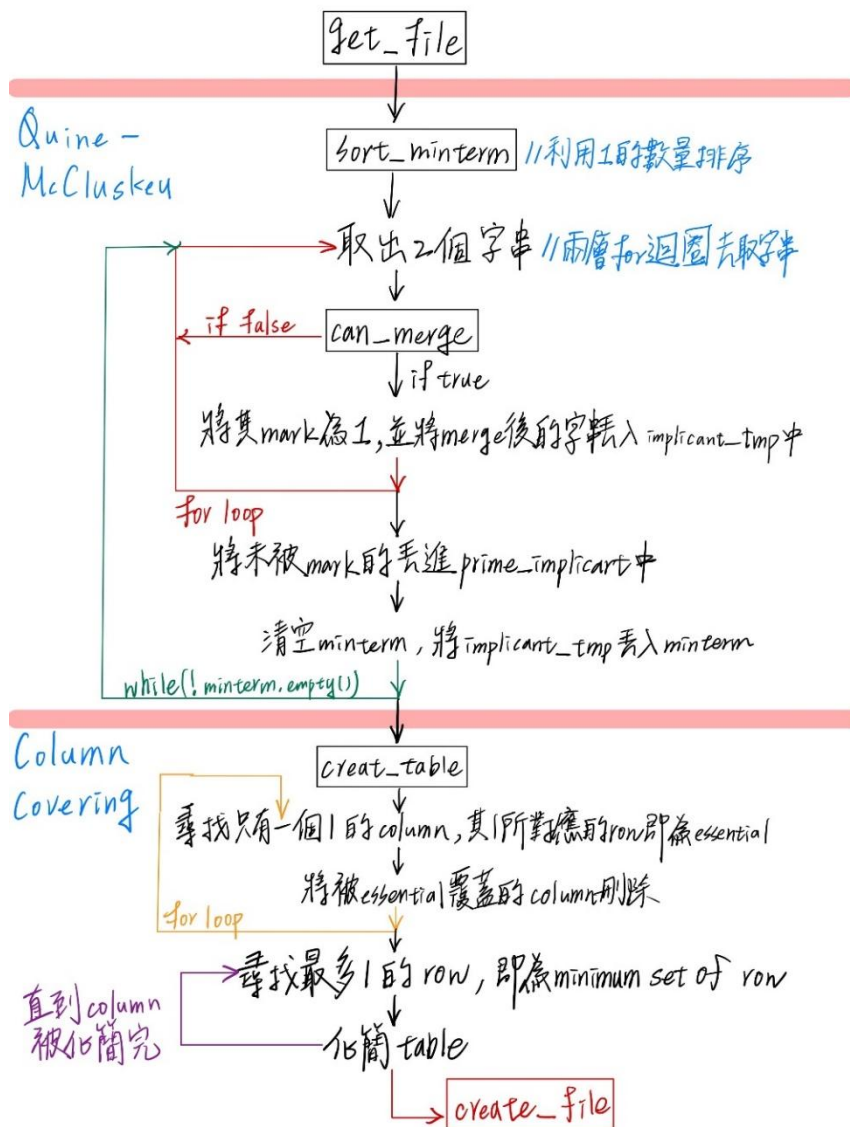 get_file
Quine-
McCluskey
sort_minterm //利用1的數量排序
取出2個字串 //兩層for迴圈去取字串
if false
can_merge
if true
將其mark為1,並將merge後的字串丟入implicant_tmp中
for loop
將未被mark的丟進prime_implicant中
清空minterm,將implicant_tmp丟入minterm
while(!minterm.empty())
Column
Covering
creat_table
尋找只有一個1的column,其1所對應的row即為essential
將被essential覆蓋的column刪除
for loop
尋找最多1的row,即為minimum set of row
直到column
被化簡完
化簡table
create_file